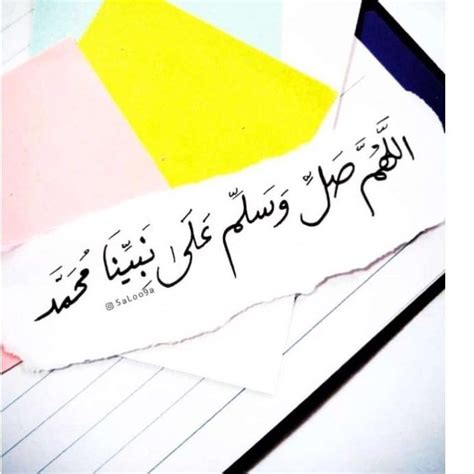 اللَّهُمَّ صَلِّ وَسَلِّم عَلَىٰ نَبِيِّنَا مُحَمَّد
5aLoo9a